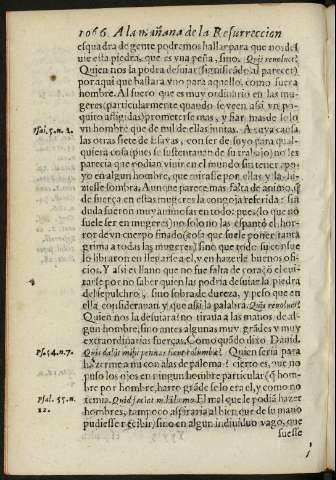 1066. A la mañana de la Resurreccion
esquadra de gente podremos hallar para que nos desuie
esta piedra, que es vna peña, sino. Quis reuoluet?
Quien nos la podra desuiar (significãdo al parecer)
por aqui que bastara vno para aquello, como fuera
hombre. Al fuero que es muy ordinario en las mugeres
(particularmente quando se veen assi vn poquito
afligidas) prometerse mas, y fiar mas de solo
vn hombre que de mil de ellas juntas. A cuya causa
las otras siete de Esayas, con ser de suyo para qualquiera
cosa (pues se sustentauan de su trabajo) no les
parecia que podian viuir en el mundo sin tener apoyo
en algun hombre, que mirasse por ellas y la
hiziesse sombra. Aunque parece mas falta de animo, q̃
de fuerça en estas mugeres la congoja referida: sin
duda fueron muy animosas en todo: pues (lo que no
suele ser en mugeres) no solo no las espantó el horror
de vn cuerpo finado (cosa que suele poner tanta
grima a todas las mugeres) sino que todo su consuelo
libraron en llegarse a el, y en hazerle buenos oficios.
Y assi el llano que no fue falta de coraçõ el cuitarse
por no saber quien las podria desuiar la piedra
del sepulchro, sino sobra de dureza, y peso que en
ella considerauan y que assi la palabra. Quis reuoluet?
Quien nos la desuiara? no tiraua a las manos, de algun
hombre, sino antes algunas muy grãdes y muy
extraordinarias fuerças. Como quãdo dixo Dauid.
Quis dabit mihi pennas sicut columbæ? Quien seria para
hazerme a mi con alas de paloma? cierto es, que no
puso los ojos en ningun hombre particular (q̃ hombre
por hombre, harto grãde se lo era el, y como no
tema. Quid faciat mihi homo. El mal que le podiã hazer
hombres, tampoco aspiraria al bien que de su mano
pudiesse recibir, sino en algun indiuiduo vago, que
fuesse
Psal. 54. n. 7.
Psal. 55. n.